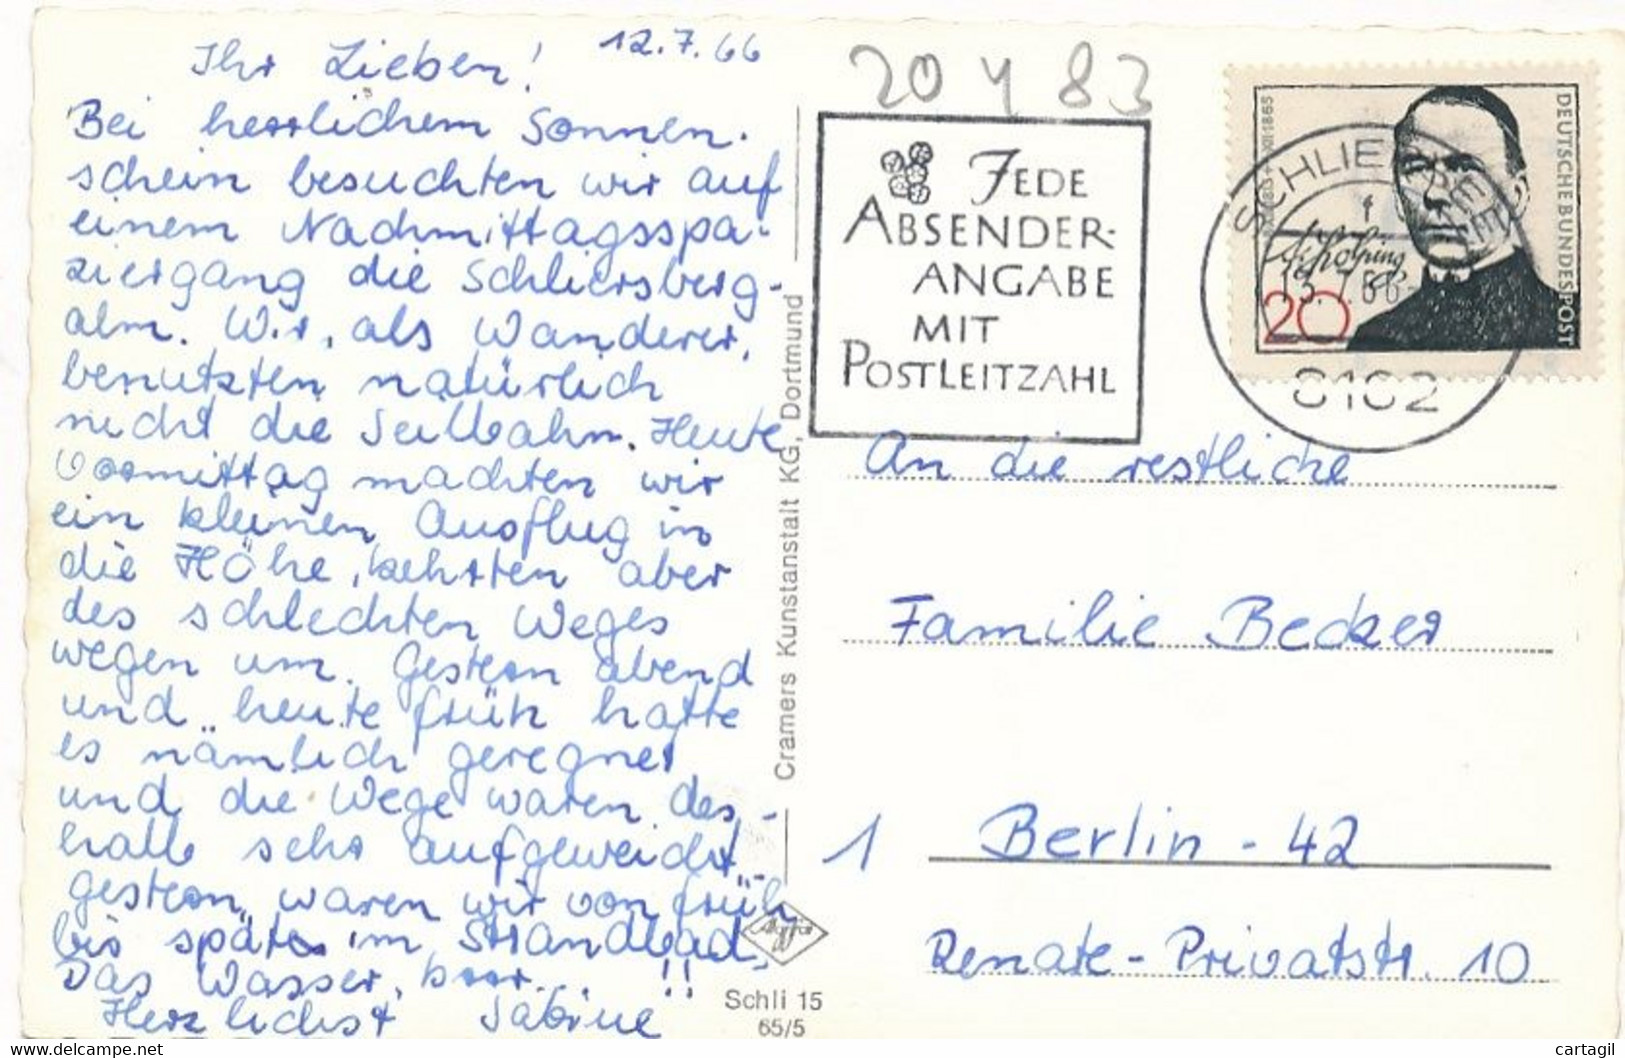 12.7.66
Ihr Lieben!
Bei herrlichem Sonnen-
schein besuchten wir auf
einem Nachmittagsspa-
ziergang die Schliersberg-
alm. Wir, als Wanderer,
benutzten natürlich
nicht die Seilbahn. Heute
Vormittag machten wir
ein kleinen Ausflug in
die Höhe, kehrten aber
des schlechten Weges
wegen um. Gestern abend
und heute früh hatte
es nämlich geregnet
und die Wege waren des-
halb sehr aufgeweicht.
gestern waren wir von früh
bis später im Strandbad,
Das Wasser, brrr... !!
Herzlichst Sabine
Cramers Kunstanstalt KG, Dortmund
Agfa
Schli 15
65/5
20 4 83
JEDE
ABSENDER-
ANGABE
MIT
POSTLEITZAHL
DEUTSCHE BUNDESPOST
Kolping
20
SCHLIERSEE
13.7.66
8162
An die restliche
Familie Becker
1 Berlin - 42
Renate-Privatstr. 10
delcampe.net
cartagil